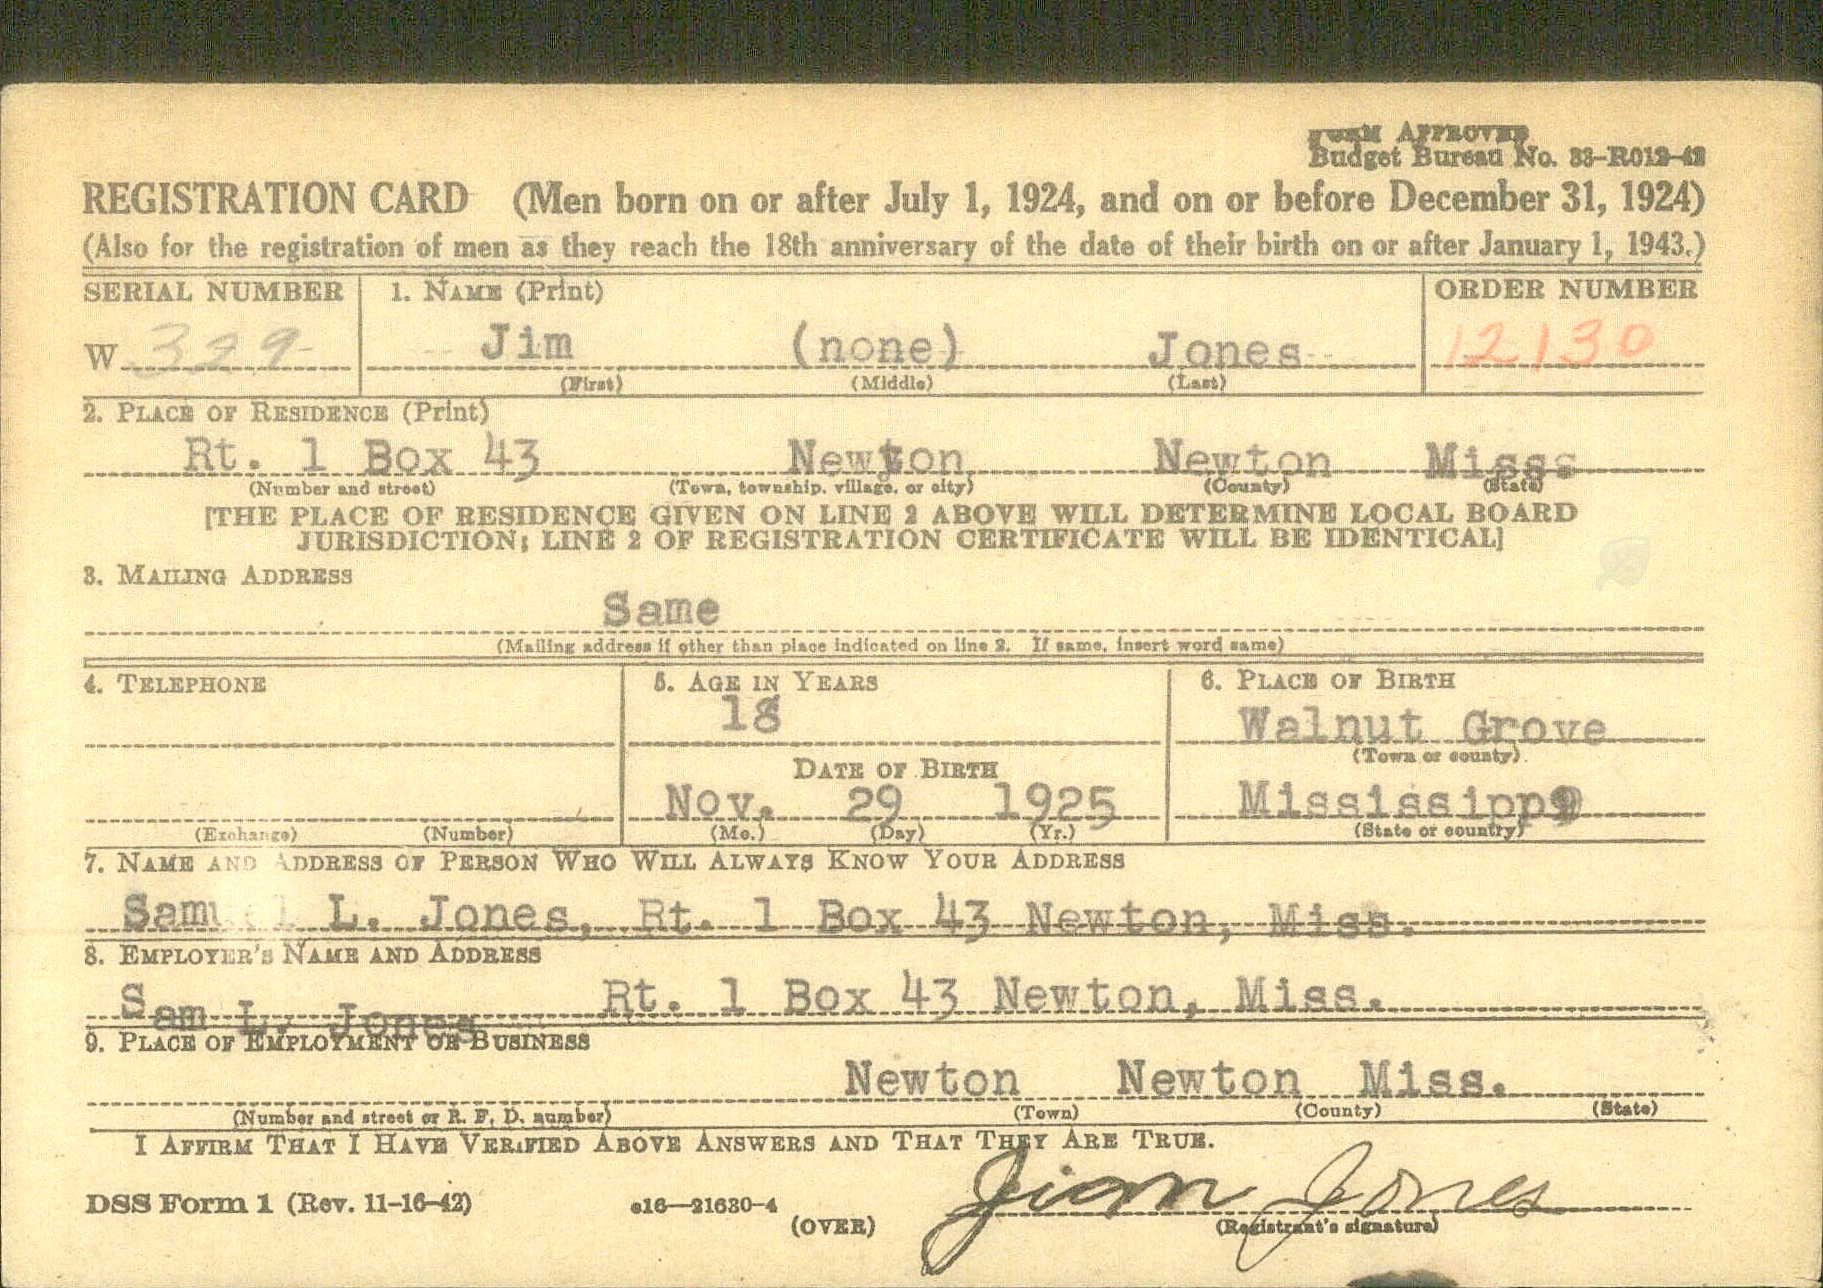 FORM APPROVED
Budget Bureau No. 33-R012-42
REGISTRATION CARD (Men born on or after July 1, 1924, and on or before December 31, 1924)
(Also for the registration of men as they reach the 18th anniversary of the date of their birth on or after January 1, 1943.)
SERIAL NUMBER 1. NAME (Print) ORDER NUMBER
W 329 Jim (none) Jones 12130
(First) (Middle) (Last)
2. PLACE OF RESIDENCE (Print)
Rt. 1 Box 43 Newton Newton Miss.
(Number and street) (Town, township, village, or city) (County) (State)
[THE PLACE OF RESIDENCE GIVEN ON LINE 2 ABOVE WILL DETERMINE LOCAL BOARD
JURISDICTION; LINE 2 OF REGISTRATION CERTIFICATE WILL BE IDENTICAL]
3. MAILING ADDRESS
Same
(Mailing address if other than place indicated on line 2. If same, insert word same)
4. TELEPHONE 5. AGE IN YEARS 6. PLACE OF BIRTH
18 Walnut Grove
(Town or county)
DATE OF BIRTH
Nov. 29 1925 Mississippi
(Exchange) (Number) (Mo.) (Day) (Yr.) (State or country)
7. NAME AND ADDRESS OF PERSON WHO WILL ALWAYS KNOW YOUR ADDRESS
Samuel L. Jones, Rt. 1 Box 43 Newton, Miss.
8. EMPLOYER'S NAME AND ADDRESS
Sam L. Jones Rt. 1 Box 43 Newton, Miss.
9. PLACE OF EMPLOYMENT OR BUSINESS
Newton Newton Miss.
(Number and street or R. F. D. number) (Town) (County) (State)
I AFFIRM THAT I HAVE VERIFIED ABOVE ANSWERS AND THAT THEY ARE TRUE.
DSS Form 1 (Rev. 11-16-42) e16—21630-4 Jim Jones
(OVER) (Registrant's signature)